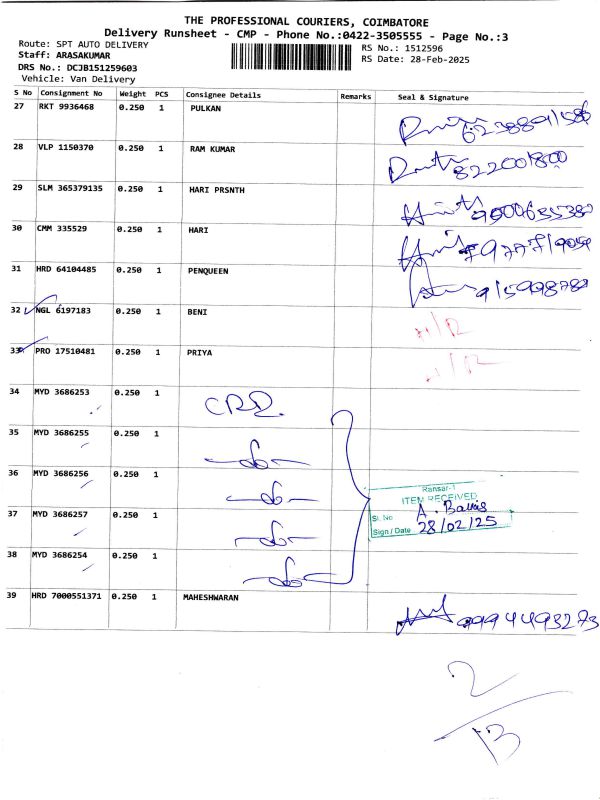 THE PROFESSIONAL COURIERS, COIMBATORE
Delivery Runsheet - CMP - Phone No.:0422-3505555 - Page No.:3
Route: SPT AUTO DELIVERY
RS No.: 1512596
Staff: ARASAKUMAR
RS Date: 28-Feb-2025
DRS No.: DCJB151259603
Vehicle: Van Delivery
S No Consignment No Weight PCS Consignee Details Remarks Seal & Signature
27 RKT 9936468 0.250 1 PULKAN
28 VLP 1150370 0.250 1 RAM KUMAR
29 SLM 365379135 0.250 1 HARI PRSNTH
30 CMM 335529 0.250 1 HARI
31 HRD 64104485 0.250 1 PENQUEEN
32 NGL 6197183 0.250 1 BENI
33 PRO 17510481 0.250 1 PRIYA
34 MYD 3686253 0.250 1
35 MYD 3686255 0.250 1
36 MYD 3686256 0.250 1
Ransar-1
ITEM RECEIVED
37 MYD 3686257 0.250 1
Sl. No
Sign / Date 28/02/25
38 MYD 3686254 0.250 1
39 HRD 7000551371 0.250 1 MAHESHWARAN 9994493273
2
13